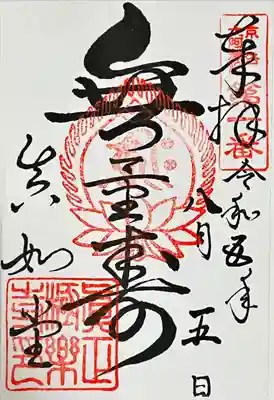 奉拝
令和五年
八月五日
無量寿
真如堂